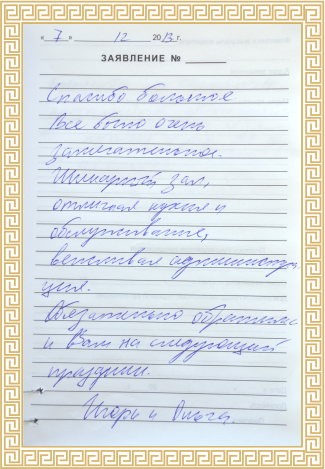 « 7 » 12 2013 г.
ЗАЯВЛЕНИЕ № ______
Спасибо большое
Все было очень
замечательное.
Шикарный зал,
отличная кухня и
обслуживание,
вежливая администра
ция.
Обязательно обратимся
к Вам на следующий
праздник.
Игорь и Ольга.